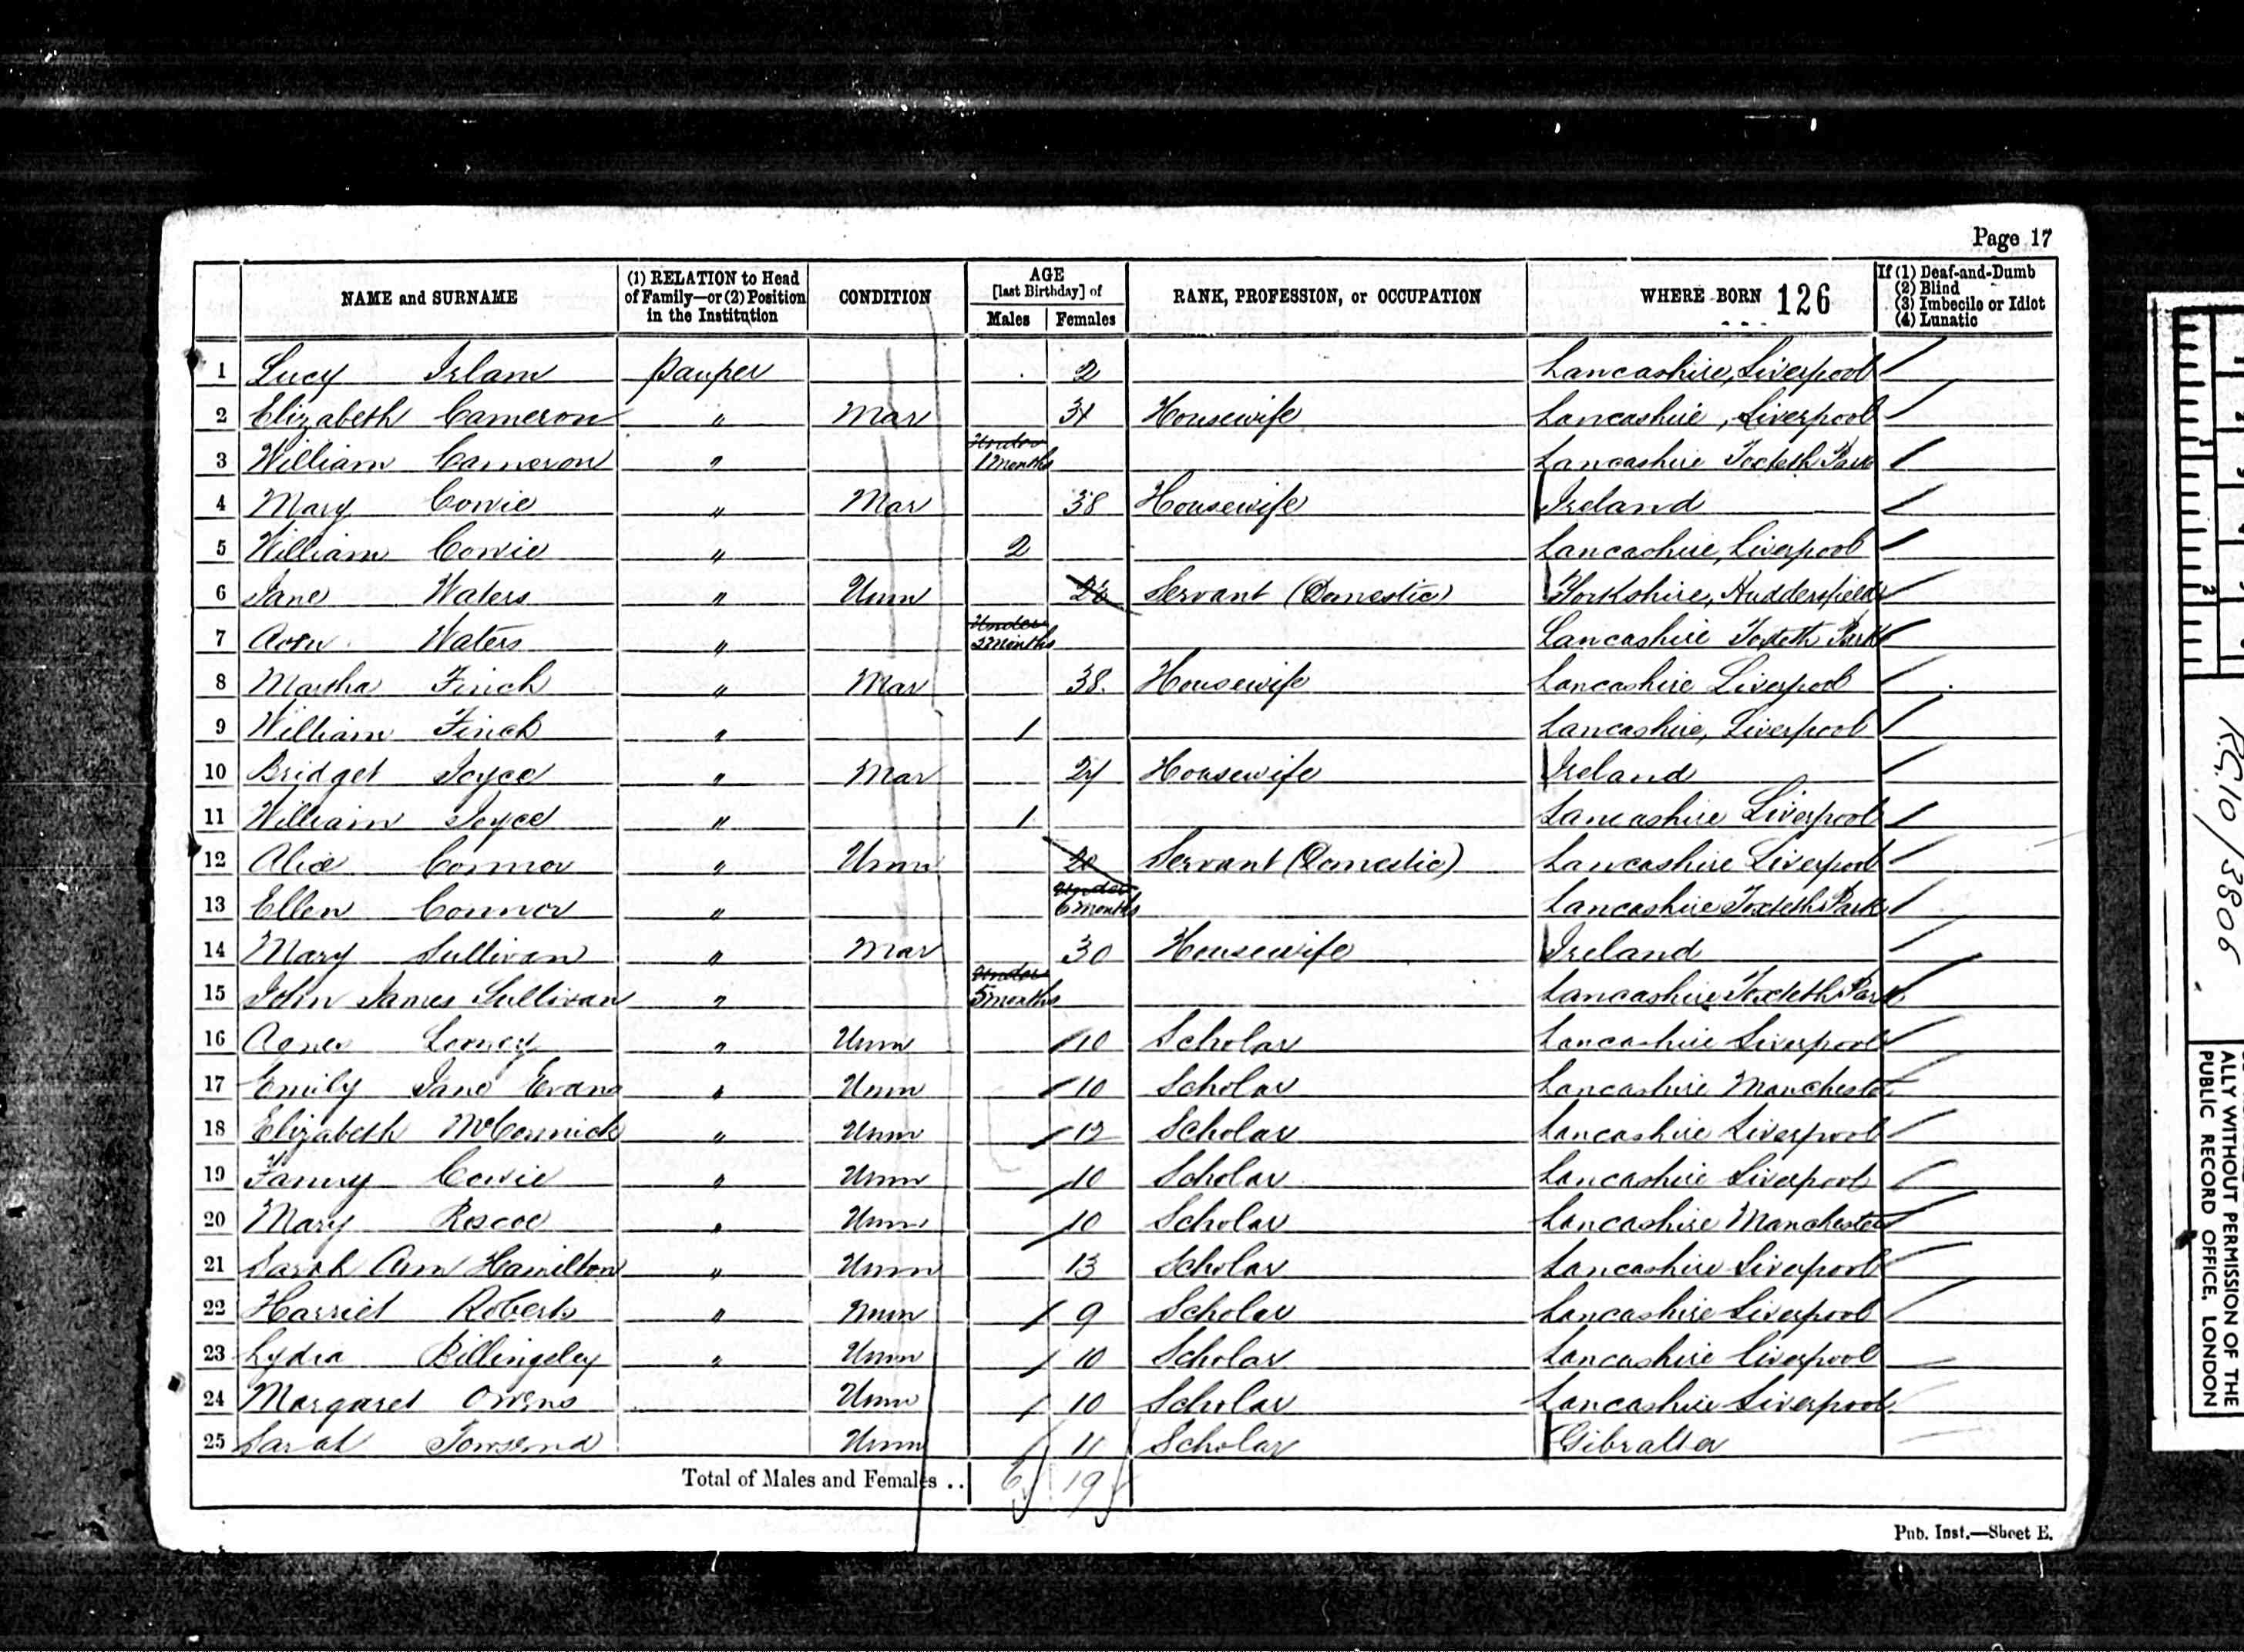 Page 17
NAME and SURNAME (1) RELATION to Head of Family—or (2) Position in the Institution CONDITION AGE [last Birthday] of Males Females RANK, PROFESSION, or OCCUPATION WHERE BORN 126 If (1) Deaf-and-Dumb (2) Blind (3) Imbecile or Idiot (4) Lunatic
1 Lucy Irlam pauper 2 Lancashire, Liverpool
2 Elizabeth Cameron " Mar Housewife Lancashire, Liverpool
3 William Cameron " Under 1 Months Lancashire Toxteth Park
4 Mary Cowie " Mar 38 Housewife Ireland
5 William Cowie " 2 Lancashire, Liverpool
6 Jane Waters " Unm Servant (Domestic) Yorkshire, Huddersfield
7 Waters " Under Months Lancashire Toxteth Park
8 Martha Finch " Mar 38 Housewife Lancashire Liverpool
9 William Finch " 1 Lancashire, Liverpool
10 Bridget Joyce " Mar Housewife Ireland
11 William Joyce " 1 Lancashire Liverpool
12 Alice Connor " Unm 20 Servant (Domestic) Lancashire Liverpool
13 Ellen Connor " Under 6 months Lancashire Toxteth Park
14 Mary Sullivan " Mar 30 Housewife Ireland
15 John James Sullivan " Under 5 months Lancashire Toxteth Park
16 Agnes Looney " Unm 10 Scholar Lancashire Liverpool
17 Emily Jane Evans " Unm 10 Scholar Lancashire Manchester
18 Elizabeth McCormick " Unm 12 Scholar Lancashire Liverpool
19 Fanny Cowie " Unm 10 Scholar Lancashire Liverpool
20 Mary Roscoe " Unm 10 Scholar Lancashire Manchester
21 Sarah Ann Hamilton " Unm 13 Scholar Lancashire Liverpool
22 Harriet Roberts " Unm 9 Scholar Lancashire Liverpool
23 Lydia Billingsley " Unm 10 Scholar Lancashire Liverpool
24 Margaret Owens Unm 10 Scholar Lancashire Liverpool
25 Sarah Townsend Unm 11 Scholar Gibralta
Total of Males and Females .. 6 19
Pub. Inst.—Sheet E.
R.G. 10/3806
ALLY WITHOUT PERMISSION OF THE
PUBLIC RECORD OFFICE, LONDON